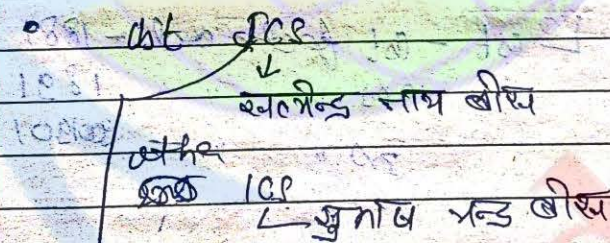 • 1st ICS
↓
सत्येन्द्र नाथ बोस
other
ICS
↳ सुभाष चन्द्र बोस